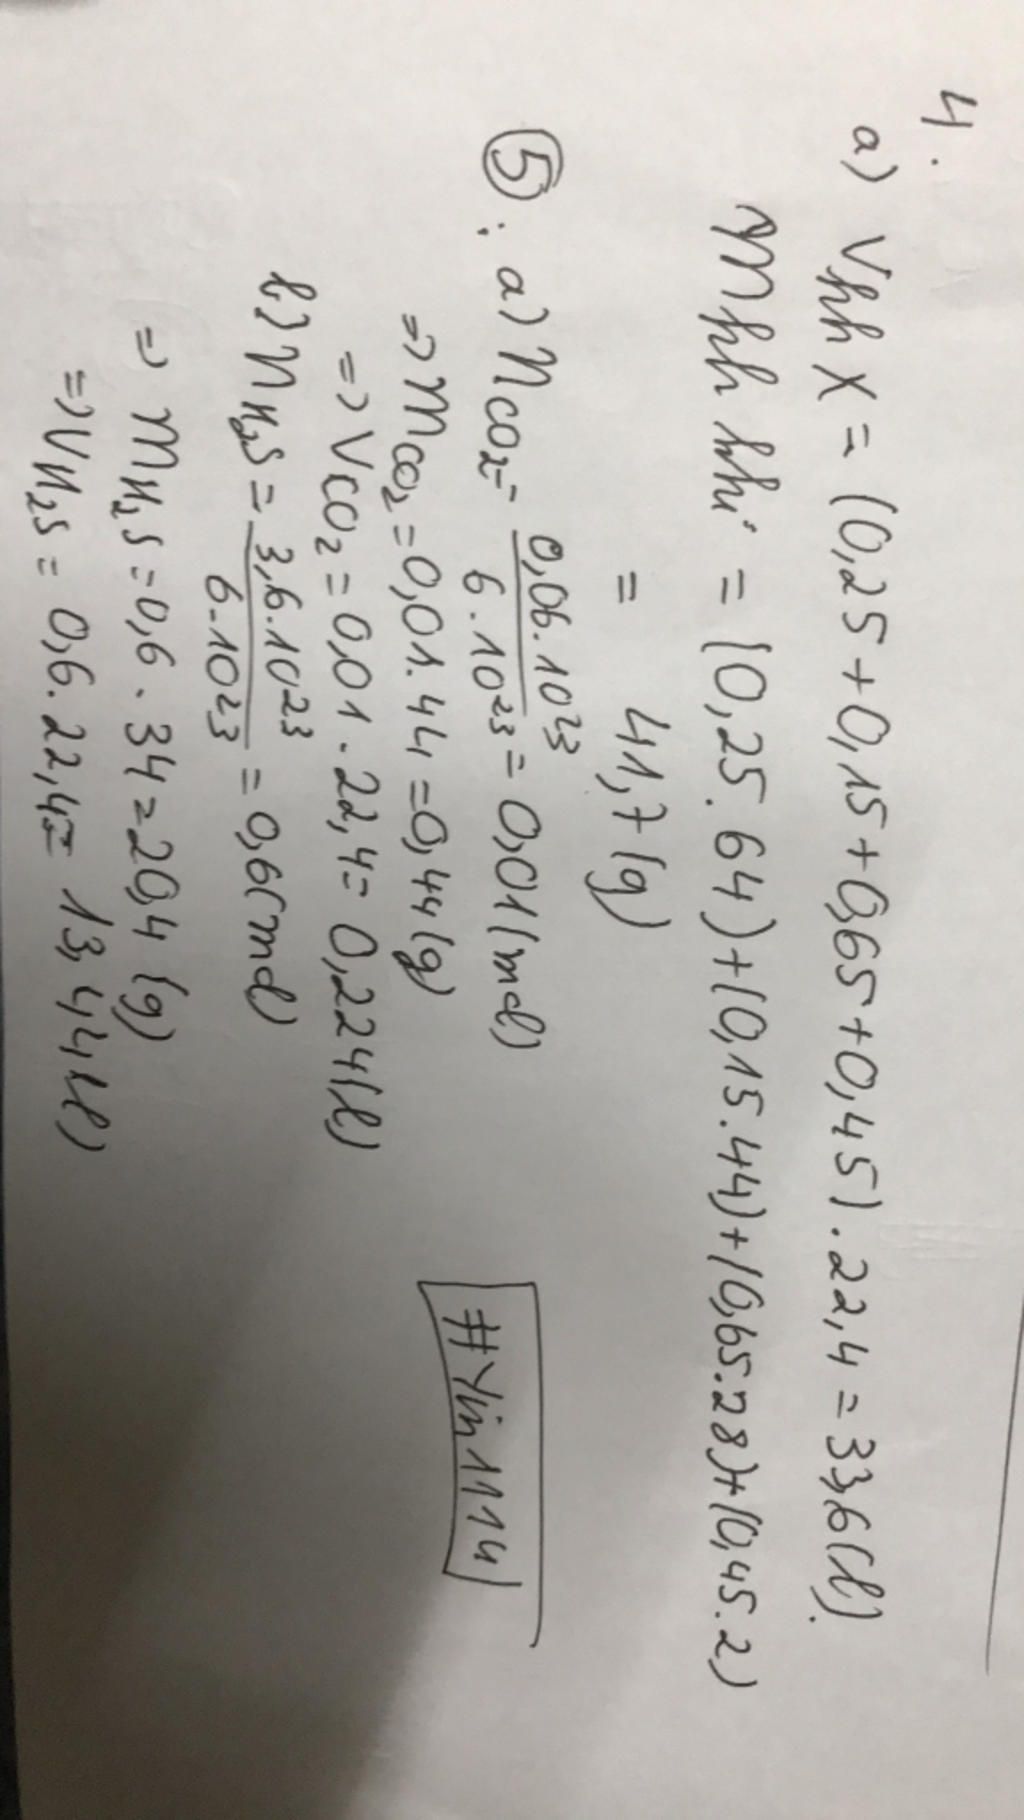 4.
a) Vhh X = (0,25+0,15+0,65+0,45).22,4 = 33,6(l).
mhh khí = (0,25.64)+(0,15.44)+(0,65.28)+(0,45.2)
= 41,7(g)
5: a) nCO2 = 0,06.10^23 / 6.10^23 = 0,01(mol)
=> mCO2 = 0,01.44 = 0,44(g)
=> VCO2 = 0,01.22,4 = 0,224(l)
b) nH2S = 3,6.10^23 / 6.10^23 = 0,6(mol)
=> mH2S = 0,6.34 = 20,4(g)
=> VH2S = 0,6.22,4 = 13,44(l)
#Yin1114